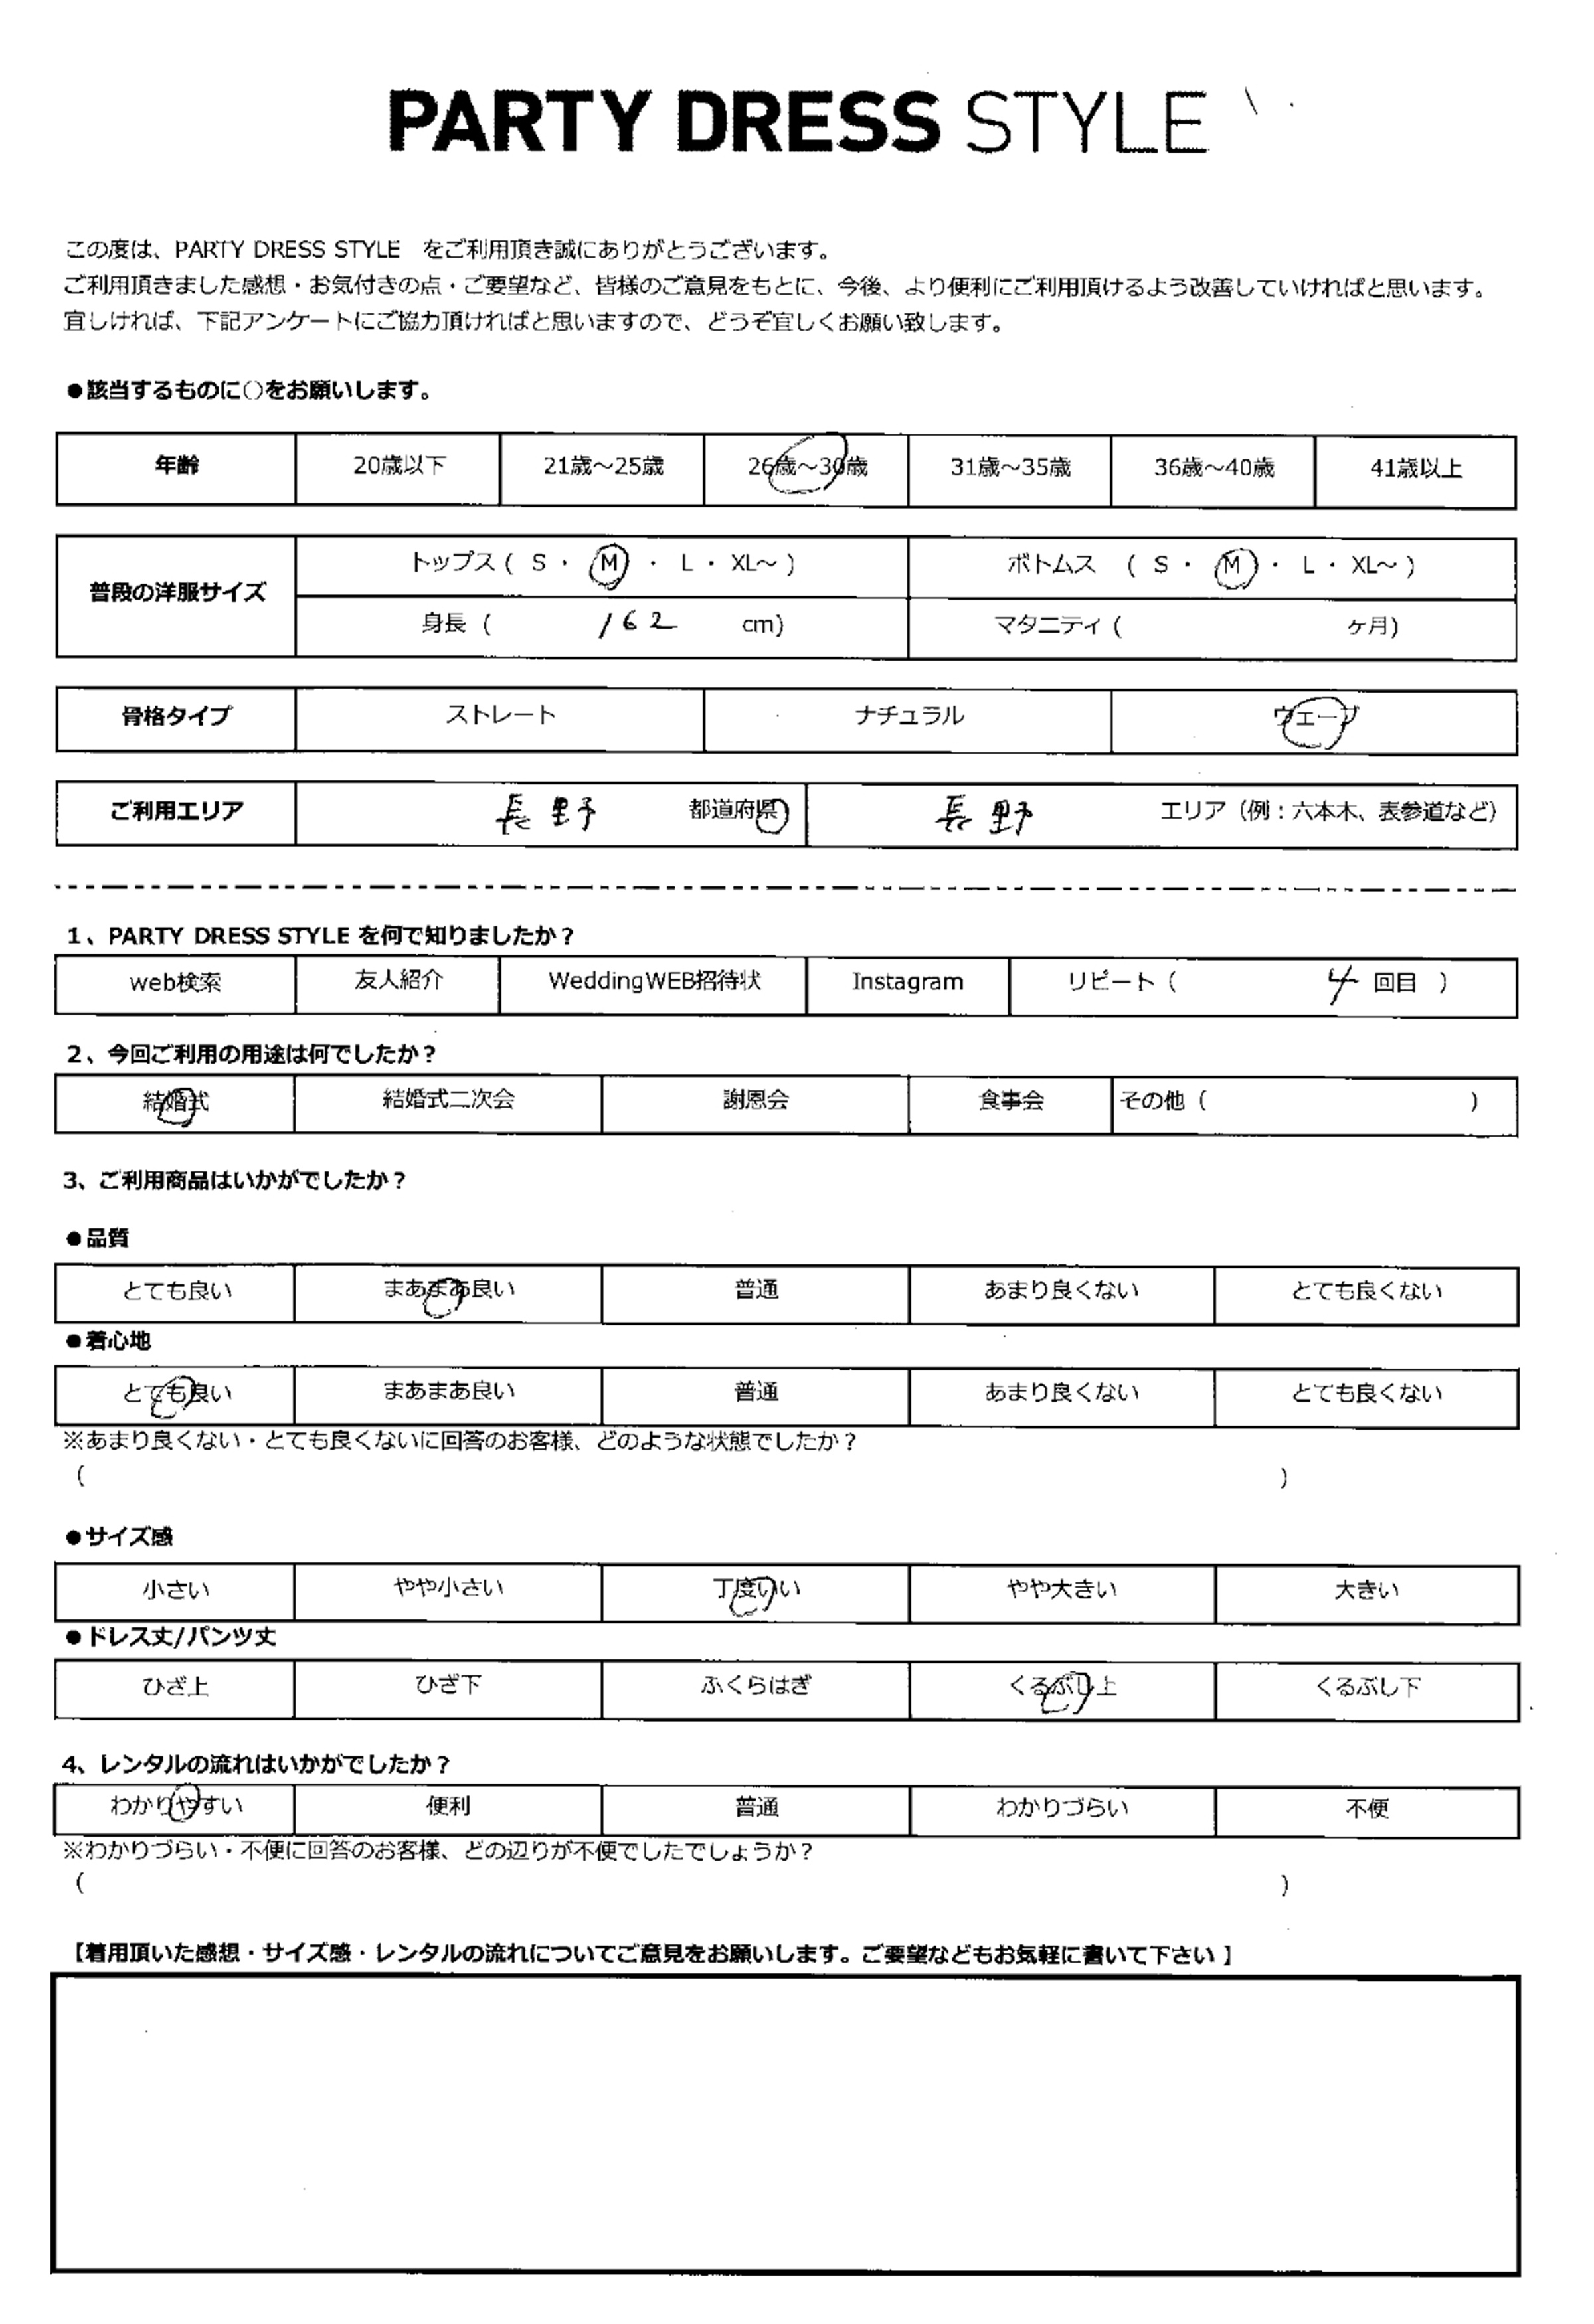 PARTY DRESS STYLE
この度は、PARTY DRESS STYLE　をご利用頂き誠にありがとうございます。
ご利用頂きました感想・お気付きの点・ご要望など、皆様のご意見をもとに、今後、より便利にご利用頂けるよう改善していければと思います。
宜しければ、下記アンケートにご協力頂ければと思いますので、どうぞ宜しくお願い致します。
●該当するものに○をお願いします。
年齢 20歳以下 21歳～25歳 26歳～30歳 31歳～35歳 36歳～40歳 41歳以上
普段の洋服サイズ トップス ( S ・ M ・ L ・ XL～ ) ボトムス ( S ・ M ・ L ・ XL～ )
身長 ( 162 cm) マタニティ ( ヶ月)
骨格タイプ ストレート ナチュラル ウェーブ
ご利用エリア 長野 都道府県 長野 エリア（例：六本木、表参道など）
1、PARTY DRESS STYLE を何で知りましたか？
web検索 友人紹介 WeddingWEB招待状 Instagram リピート（ 4 回目 ）
2、今回ご利用の用途は何でしたか？
結婚式 結婚式二次会 謝恩会 食事会 その他（ ）
3、ご利用商品はいかがでしたか？
●品質
とても良い まあまあ良い 普通 あまり良くない とても良くない
●着心地
とても良い まあまあ良い 普通 あまり良くない とても良くない
※あまり良くない・とても良くないに回答のお客様、どのような状態でしたか？
（ ）
●サイズ感
小さい やや小さい 丁度いい やや大きい 大きい
●ドレス丈/パンツ丈
ひざ上 ひざ下 ふくらはぎ くるぶし上 くるぶし下
4、レンタルの流れはいかがでしたか？
わかりやすい 便利 普通 わかりづらい 不便
※わかりづらい・不便に回答のお客様、どの辺りが不便でしたでしょうか？
（ ）
【着用頂いた感想・サイズ感・レンタルの流れについてご意見をお願いします。ご要望などもお気軽に書いて下さい 】